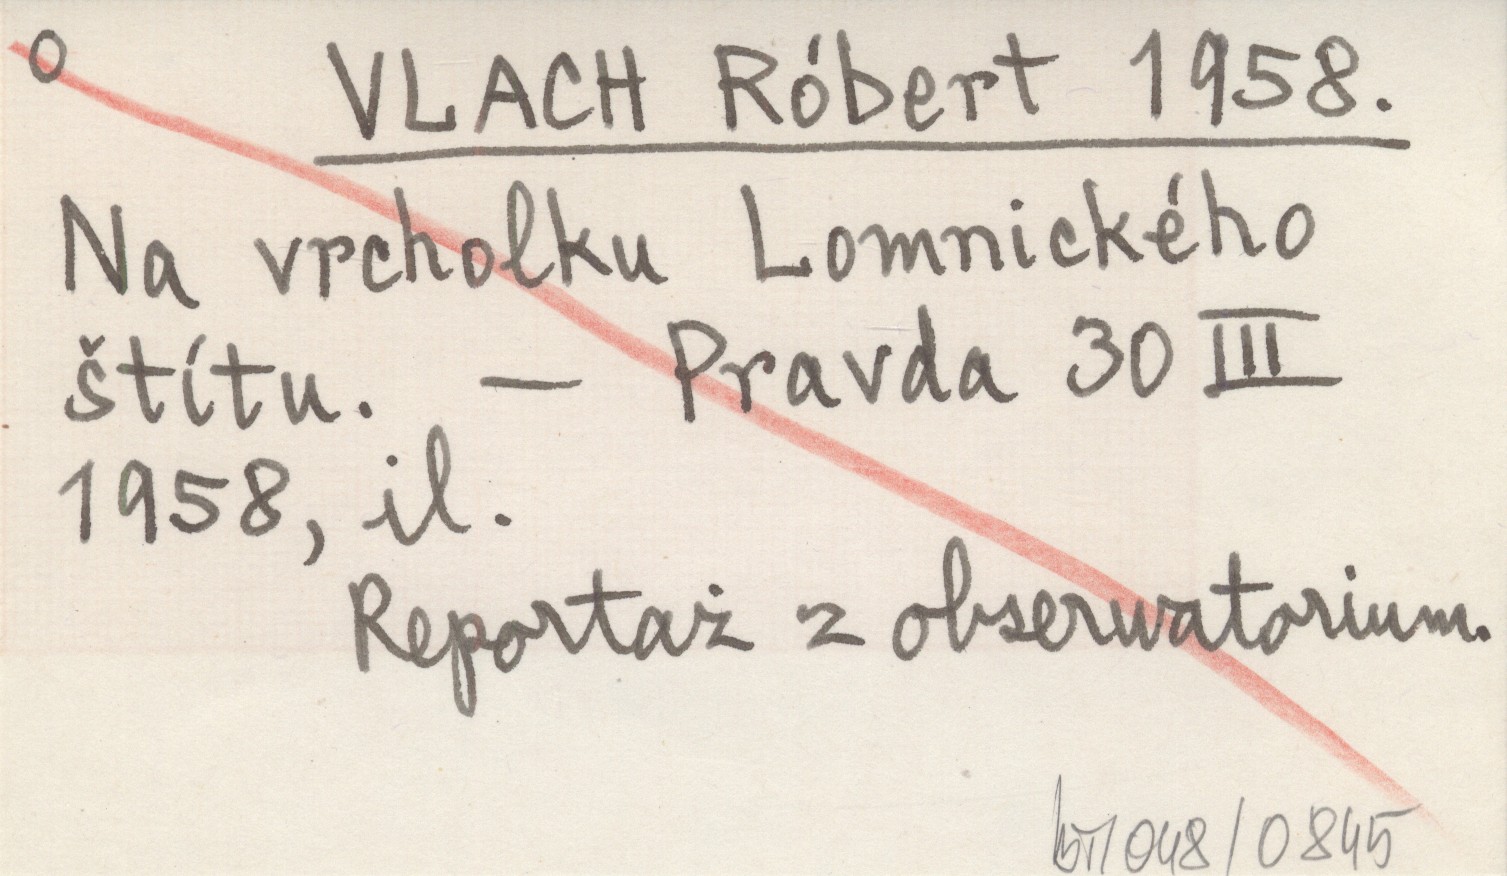 o VLACH Róbert 1958.
Na vrcholku Lomnického
štítu. — Pravda 30 III
1958, il.
Reportaż z obserwatorium.
048/0845